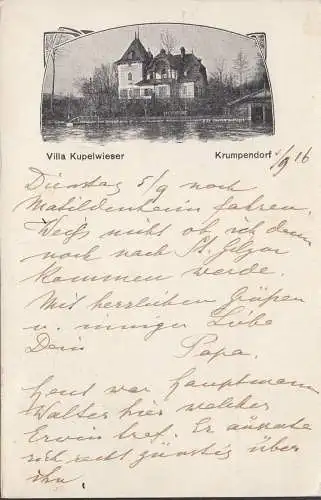 Villa Kupelwieser Krumpendorf 5/9 16
Dienstag 5/9 nach
Mathildenheim fahren.
Weiß nicht ob ich dann
noch nach St. Gilgen
kommen werde.
Mit herzlichen Grüßen
u. inniger Liebe
Dein Papa.
Heut war Hauptmann
Walter hier welcher
Erwin traf. Er äußerte
sich recht günstig über
ihn.